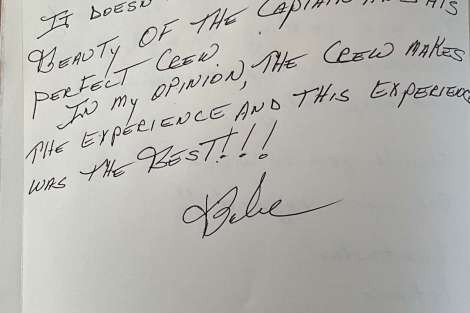 IT DOESN'
BEAUTY OF THE CAPTAIN AND HIS
PERFECT CREW.
IN MY OPINION, THE CREW MAKES
THE EXPERIENCE AND THIS EXPERIENC
WAS THE BEST!!!